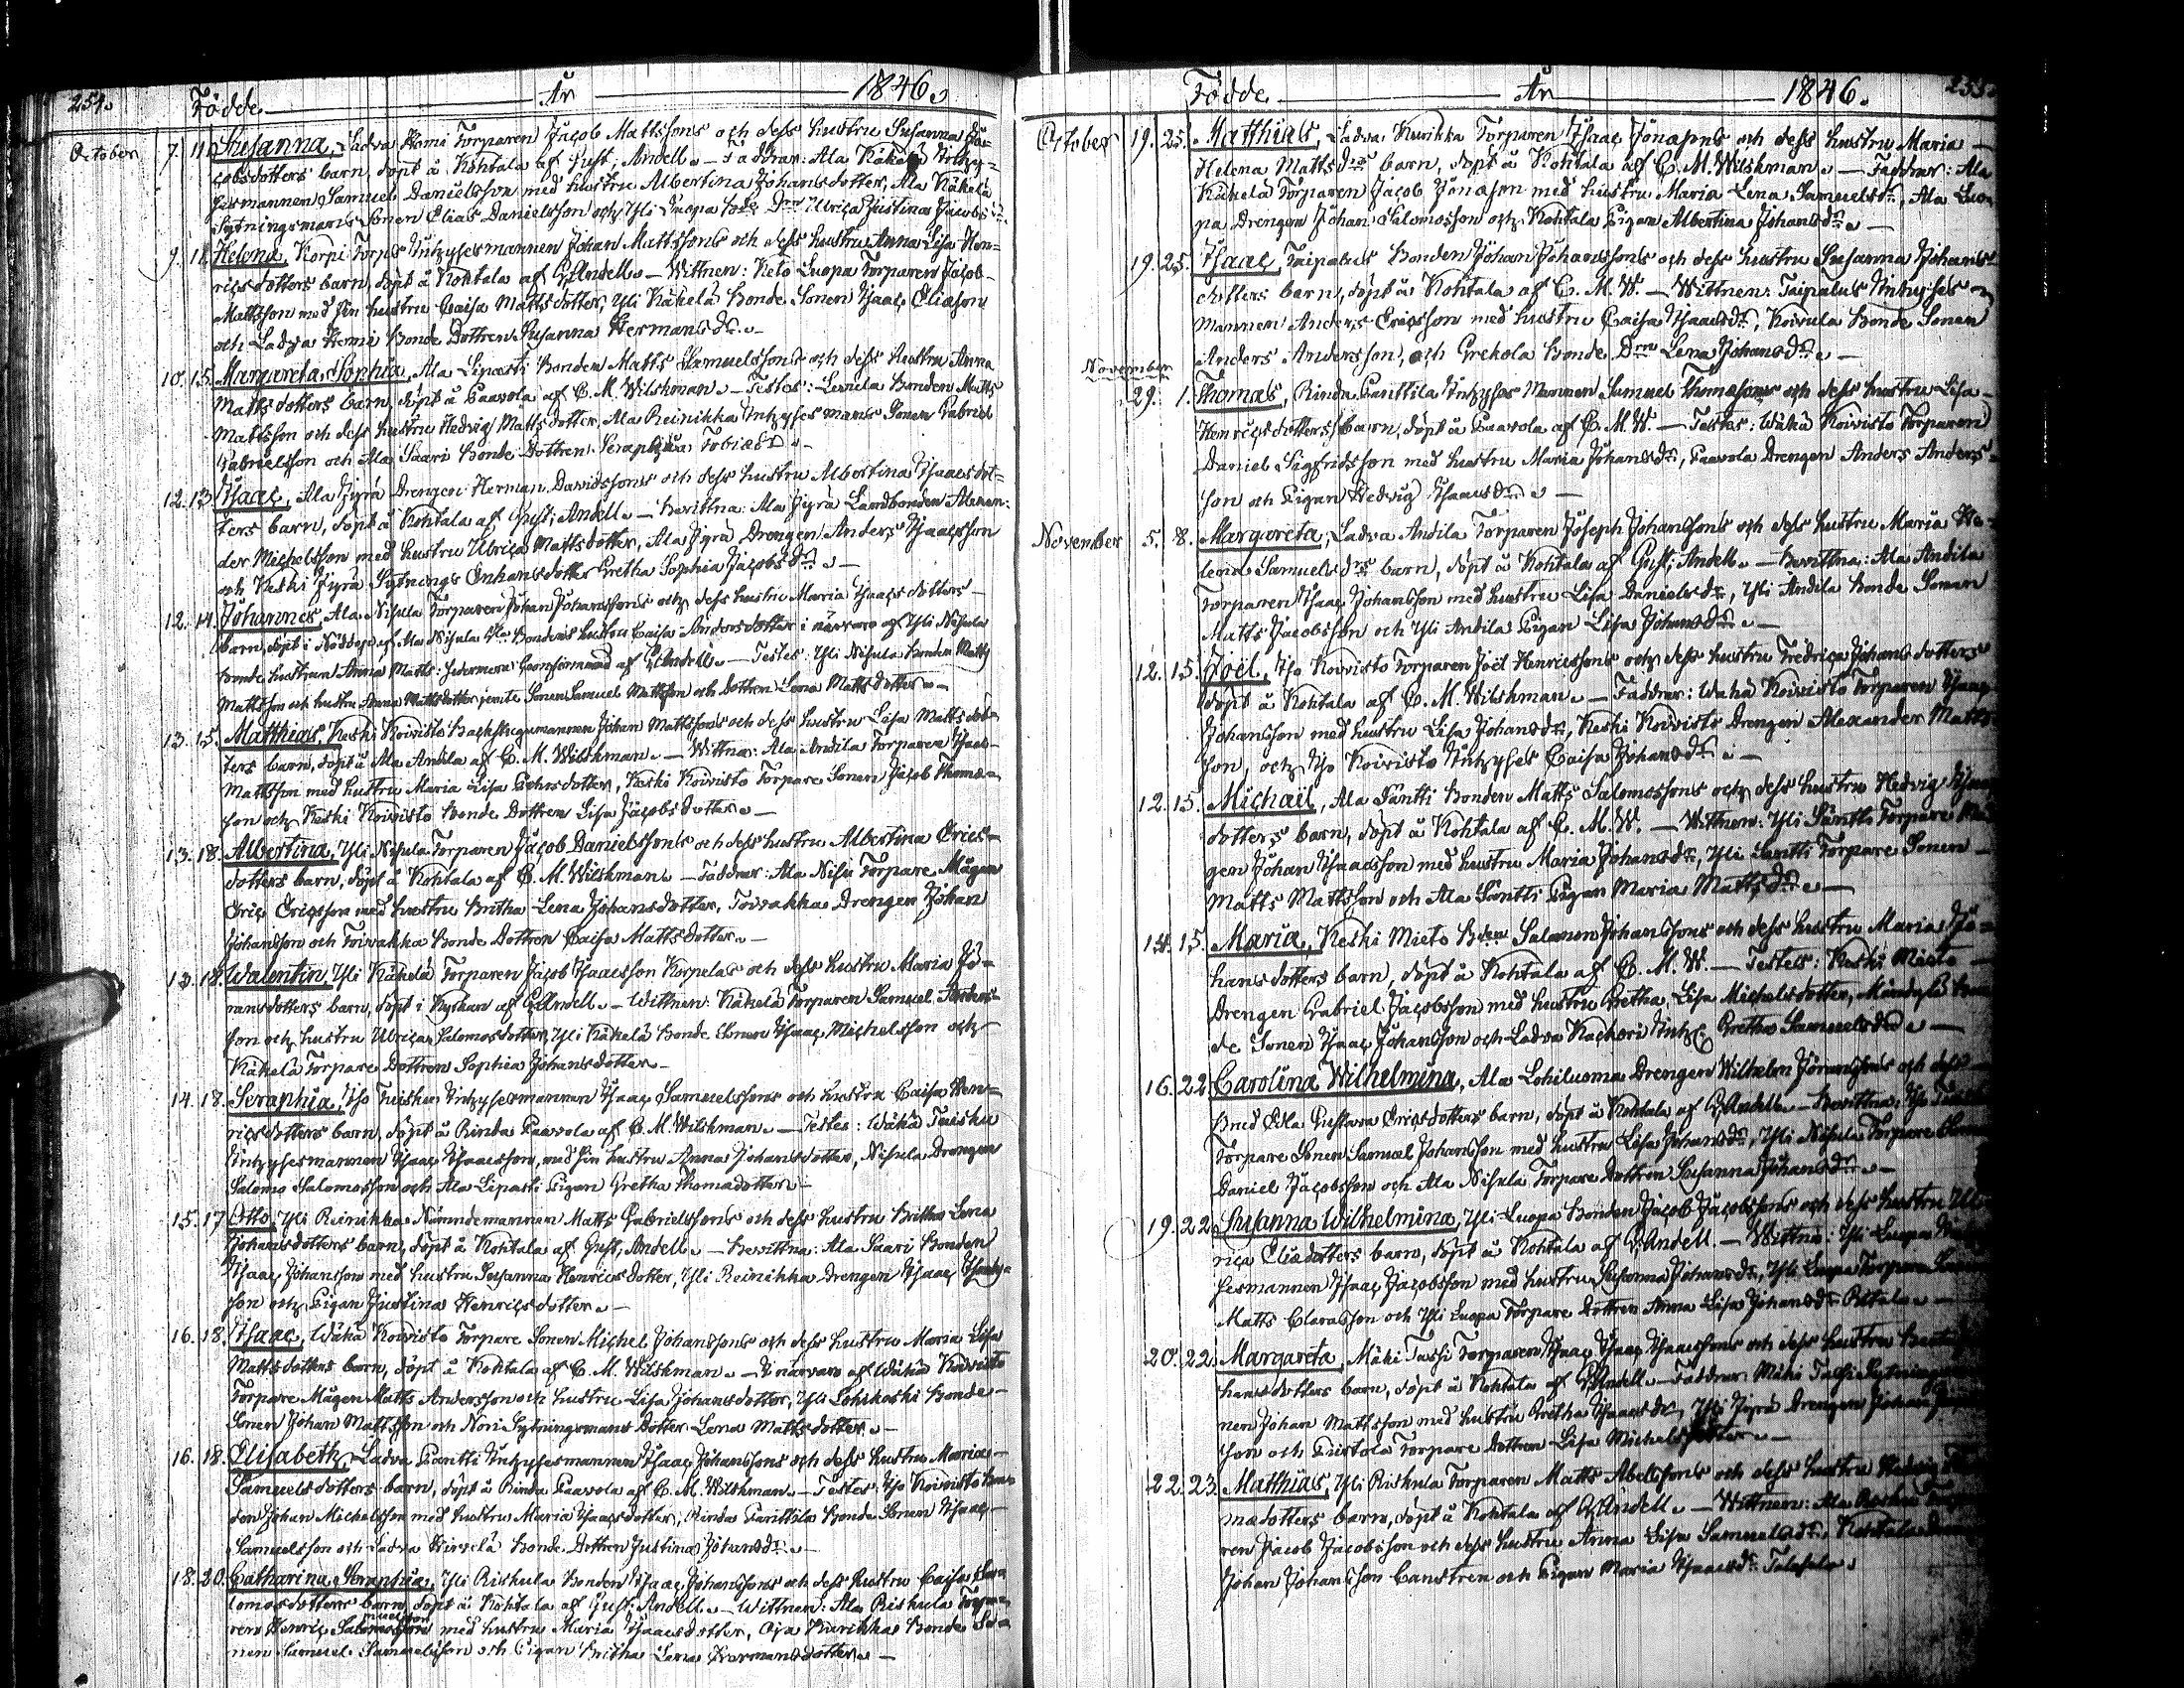 254. Födde År 1846.
October 7. 11. Susanna, Ladva Homi Torparen Jacob Mattssons och dess hustru Susanna Ja-
cobsdotters barn, döpt å Kohtala af Gust: Andell. — Faddrar: Ala Käkelä Inhy-
sesmannen Samuel Danielsson med hustru Albertina Johansdotter, Ala Käkelä
Sytningsmans Sonen Elias Danielsson och Yli Luopa Ulrica Justina Jacobs
9. 11. Helena, Korpi Torps Inhysesmannen Johan Mattssons och dess hustru Anna Lisa Hen-
ricsdotters barn, döpt å Kohtala af G. Andell. — Wittnen: Keto Luopa Torparen Jacob
Mattsson med sin hustru Caisa Mattsdotter, Yli Käkelä Bonde Sonen Isaac Eliasson
och Ladva Homi Bonde Dottren Susanna Hermansdr. —
10. 15. Margareta Sophia, Ala Lipasti Bonden Matts Samuelssons och dess hustru Anna
Mattsdotters barn, döpt å Paavola af C. M. Wilskman. — Testes: Leniela Bonden Matts
Mattsson och dess hustru Hedvig Mattsdotter, Ala Reinikka Inhysesmans Sonen Gabriel
Gabrielsson och Ala Saari Bonde Dottren Seraphia Tobiaed. —
12. 13. Isaac, Ala Jyrä Drengen Herman Davidssons och dess hustru Albertina Isaacsdot-
ters barn, döpt å Kohtala af Gust: Andell. — Bevittna: Ala Jyrä Landbonden Alexan-
der Michelsson med hustru Ulrica Mattsdotter, Ala Jyrä Drengen Anders Isaacsson
och Keski Jyrä Sytnings Enkansdotter Gretha Sophia Jacobsdr. —
12. 14. Johannes, Ala Nisula Torparen Johan Johanssons och dess hustru Maria Isaacsdotters
barn, döpt i Nöddop af Ala Nisula Bondens hustru Caisa Andersdotter i närvaro af Yli Nisula
bonde hustrun Anna Matts: af G. Andell. — Testes: Yli Nisula Bonden Matts
Mattsson och hustru Anna Mattsdotter, jemte Sonen Samuel Mattsson och dottren Lena Mattsdotter. —
13. 15. Matthias, Keski Koivisto Backstugumannen Johan Mattssons och dess hustru Lisa Mattsdot-
ters barn, döpt å Ala Andila af C. M. Wilskman. — Wittna: Ala Andila Torparen Isaac
Mattsson med hustru Maria Lisa Eliasdotter, Keski Koivisto Torpare Sonen Jacob Thomas-
son och Keski Koivisto Bonde Dottren Lisa Jacobsdotter. —
13. 18. Albertina, Yli Nisula Torparen Jacob Danielssons och dess hustru Albertina Erics-
dotters barn, döpt å Kohtala af C. M. Wilskman. — Faddrar: Ala Nisu Torpare Mågen
Eric Ericsson med hustru Britha Lena Johansdotter, Toivakka Drengen Johan
Johansson och Toivakka Bonde Dottren Caisa Mattsdotter. —
13. 18. Walentin, Yli Käkelä Torparen Jacob Isaacsson Korpelas och dess hustru Maria Jo-
hansdotters barn, döpt i Kyrkan af G. Andell. — Wittnen: Käkelä Torparen Samuel
son och hustru Ulrica Salomosdotter, Yli Käkelä Bonde Sonen Isaac Michelsson och
Käkelä Torpare Dottren Sophia Johansdotter. —
14. 18. Seraphia, Iso Tuisku Inhysesmannen Isaac Samuelssons och hustru Caisa Hen-
ricsdotters barn, döpt å Rinda Paavola af C. M. Wilskman. — Testes: Wähä Tuisku
Inhysesmannen Isaac Isaacsson, med sin hustru Anna Johansdotter, Nisula Drengen
Salomo Salomosson och Ala Lipasti Pigan Gretha Thomasdotter. —
15. 17. Otto, Yli Reinikka Nämndemannen Matts Gabrielssons och dess hustru Britha Lena
Johansdotters barn, döpt å Kohtala af Gust: Andell. — Bevittna: Ala Saari Bonden
Isaac Johansson med hustru Susanna Henricsdotter, Yli Reinikka Drengen Isaac
son och Pigan Justina Henricsdotter. —
16. 18. Isaac, Wähä Koivisto Torpare Sonen Michel Johanssons och dess hustru Maria Lisa
Mattsdotters barn, döpt å Kohtala af C. M. Wilskman. — I närvaro af Wähä Koivisto
Torpare Mågen Matts Andersson och hustru Lisa Johansdotter, Yli Lohikoski Bonde
Sonen Johan Mattsson och Noni Sytningsmans Dotter Lena Mattsdotter. —
16. 18. Elisabeth, Ladva Pantti Inhysesmannen Isaac Johanssons och dess hustru Maria
Samuelsdotters barn, döpt å Rinda Paavola af C. M. Wilskman. — Testes: Iso Koivisto Bon-
den Johan Michelsson med hustru Maria Isaacsdotter, Rinda Panttila Bonde Sonen Isaac
Samuelsson och Ladva Hirvelä Bonde Dottren Justina Johansdr. —
18. 20. Catharina Seraphia, Yli Riskula Bonden Isaac Johanssons och dess hustru Caisa Sa-
lomosdotters barn, döpt å Kohtala af Gust: Andell. — Wittnen: Ala Riskula Torpa-
ren Henric Salomosson med hustru Maria Isaacsdotter, Oja Kurikka Bonde So-
nen Samuel Samuelsson och Pigan Britha Lena Hermansdotter. —
Födde År 1846. 255.
October 19. 25. Matthias, Ladva Kurikka Torparen Isaac Jonassons och dess hustru Maria
Helena Mattsdrs barn, döpt å Kohtala af C. M. Wilskman. — Faddrar: Ala
Käkelä Torparen Jacob Jonasson med hustru Maria Lena Samuelsdr, Ala Luo-
pa Drengen Johan Salomosson och Kohtala Pigan Albertina Johansdr. —
19. 25. Isaac, Taipalus Bonden Johan Johanssons och dess hustru Susanna Johans-
dotters barn, döpt å Kohtala af C. M. W. — Wittnen: Taipalus Inhyses
mannen Anders Ericsson med hustru Caisa Isaacsdr, Koivula Bonde Sonen
Anders Andersson, och Grekola Bonde Drn Lena Johansdr. —
November
29. 1. Thomas, Rinda Panttila Inhyses Mannen Samuel Thomassons och dess hustru Lisa
Henricsdotters barn, döpt å Paavola af C. M. W. — Testes: Wähä Koivisto Torparen
Daniel Sigfridsson med hustru Maria Johansdr, Paavola Drengen Anders Anders-
son och Pigan Hedvig Isaacsdr. —
November 5. 8. Margareta, Ladva Andila Torparen Joseph Johanssons och dess hustru Maria He-
lena Samuelsdrs barn, döpt å Kohtala af Gust: Andell. — Bevittna: Ala Andila
Torparen Isaac Johansson med hustru Lisa Danielsdr, Yli Andila Bonde Sonen
Matts Jacobsson och Yli Andila Pigan Lisa Johansdr. —
12. 15. Joel, Iso Koivisto Torparen Joel Henricssons och dess hustru Fredrica Johansdotters
döpt å Kohtala af C. M. Wilskman. — Faddrar: Wähä Koivisto Torparen Isaac
Johansson med hustru Lisa Johansdr, Keski Koivisto Drengen Alexander Matts
son, och Iso Koivisto Inhyses Caisa Johansdr. —
12. 15. Michaël, Ala Säntti Bonden Matts Salomossons och dess hustru Hedvig Isaacs
dotters barn, döpt å Kohtala af C. M. W. — Wittnen: Yli Säntti Torpare Må-
gen Johan Isaacsson med hustru Maria Johansdr, Yli Säntti Torpare Sonen
Matts Mattsson och Ala Säntti Pigan Maria Mattsdr. —
14. 15. Maria, Keski Mieto Bden Salomon Johanssons och dess hustru Maria Jo-
hansdotters barn, döpt å Kohtala af C. M. W. — Testes: Keski Mieto
Drengen Gabriel Jacobsson med hustru Gretha Lisa Michelsdotter, Mäntylä Bon-
de Sonen Isaac Johansson och Ladva Kachori Inh: Gretha Samuelsdr. —
16. 22. Carolina Wilhelmina, Ala Lohiluoma Drengen Wilhelm och dess
Hust Gustava Ericsdotters barn, döpt å Kohtala af G. Andell. — Bevittna: Iso
Torpare Sonen Samuel Johansson med hustru Lisa Johansdr, Yli Nisula Torpare Sonen
Daniel Jacobsson och Ala Nisula Torpare Dottren Susanna Johansdr. —
19. 22. Susanna Wilhelmina, Yli Luopa Bonden Jacob Jacobssons och dess hustru Ul-
rica Eliadotters barn, döpt å Kohtala af G. Andell. — Wittna: Yli Luopa Inhy-
sesmannen Isaac Jacobsson med hustru Susanna Johansdr, Yli Luopa Torpare Sonen
Matts Clarasson och Yli Luopa Torpare Dottren Anna Lisa Johansdr
20. 22. Margareta, Mäki Tassi Torparen Isaac Isaac Isaacssons och dess hustru
hansdotters barn, döpt å Kohtala af G. Andell. — Faddrar: Mäki Tassi Sytnings
nen Johan Mattsson med hustru Gretha Isaacsdr, Yli Jyrä Drengen Johan
son och Turtola Torpare Dottren Lisa Michelsdotter. —
22. 23. Matthias, Yli Riskula Torparen Matts Abelssons och dess hustru Hedvig
madotters barn, döpt å Kohtala af G. Andell. — Wittnen: Ala
ren Jacob Jacobsson och dess hustru Anna Lisa Samuelsdr, Kohtala
Johan Johansson Canstren och Pigan Maria Isaacsdr